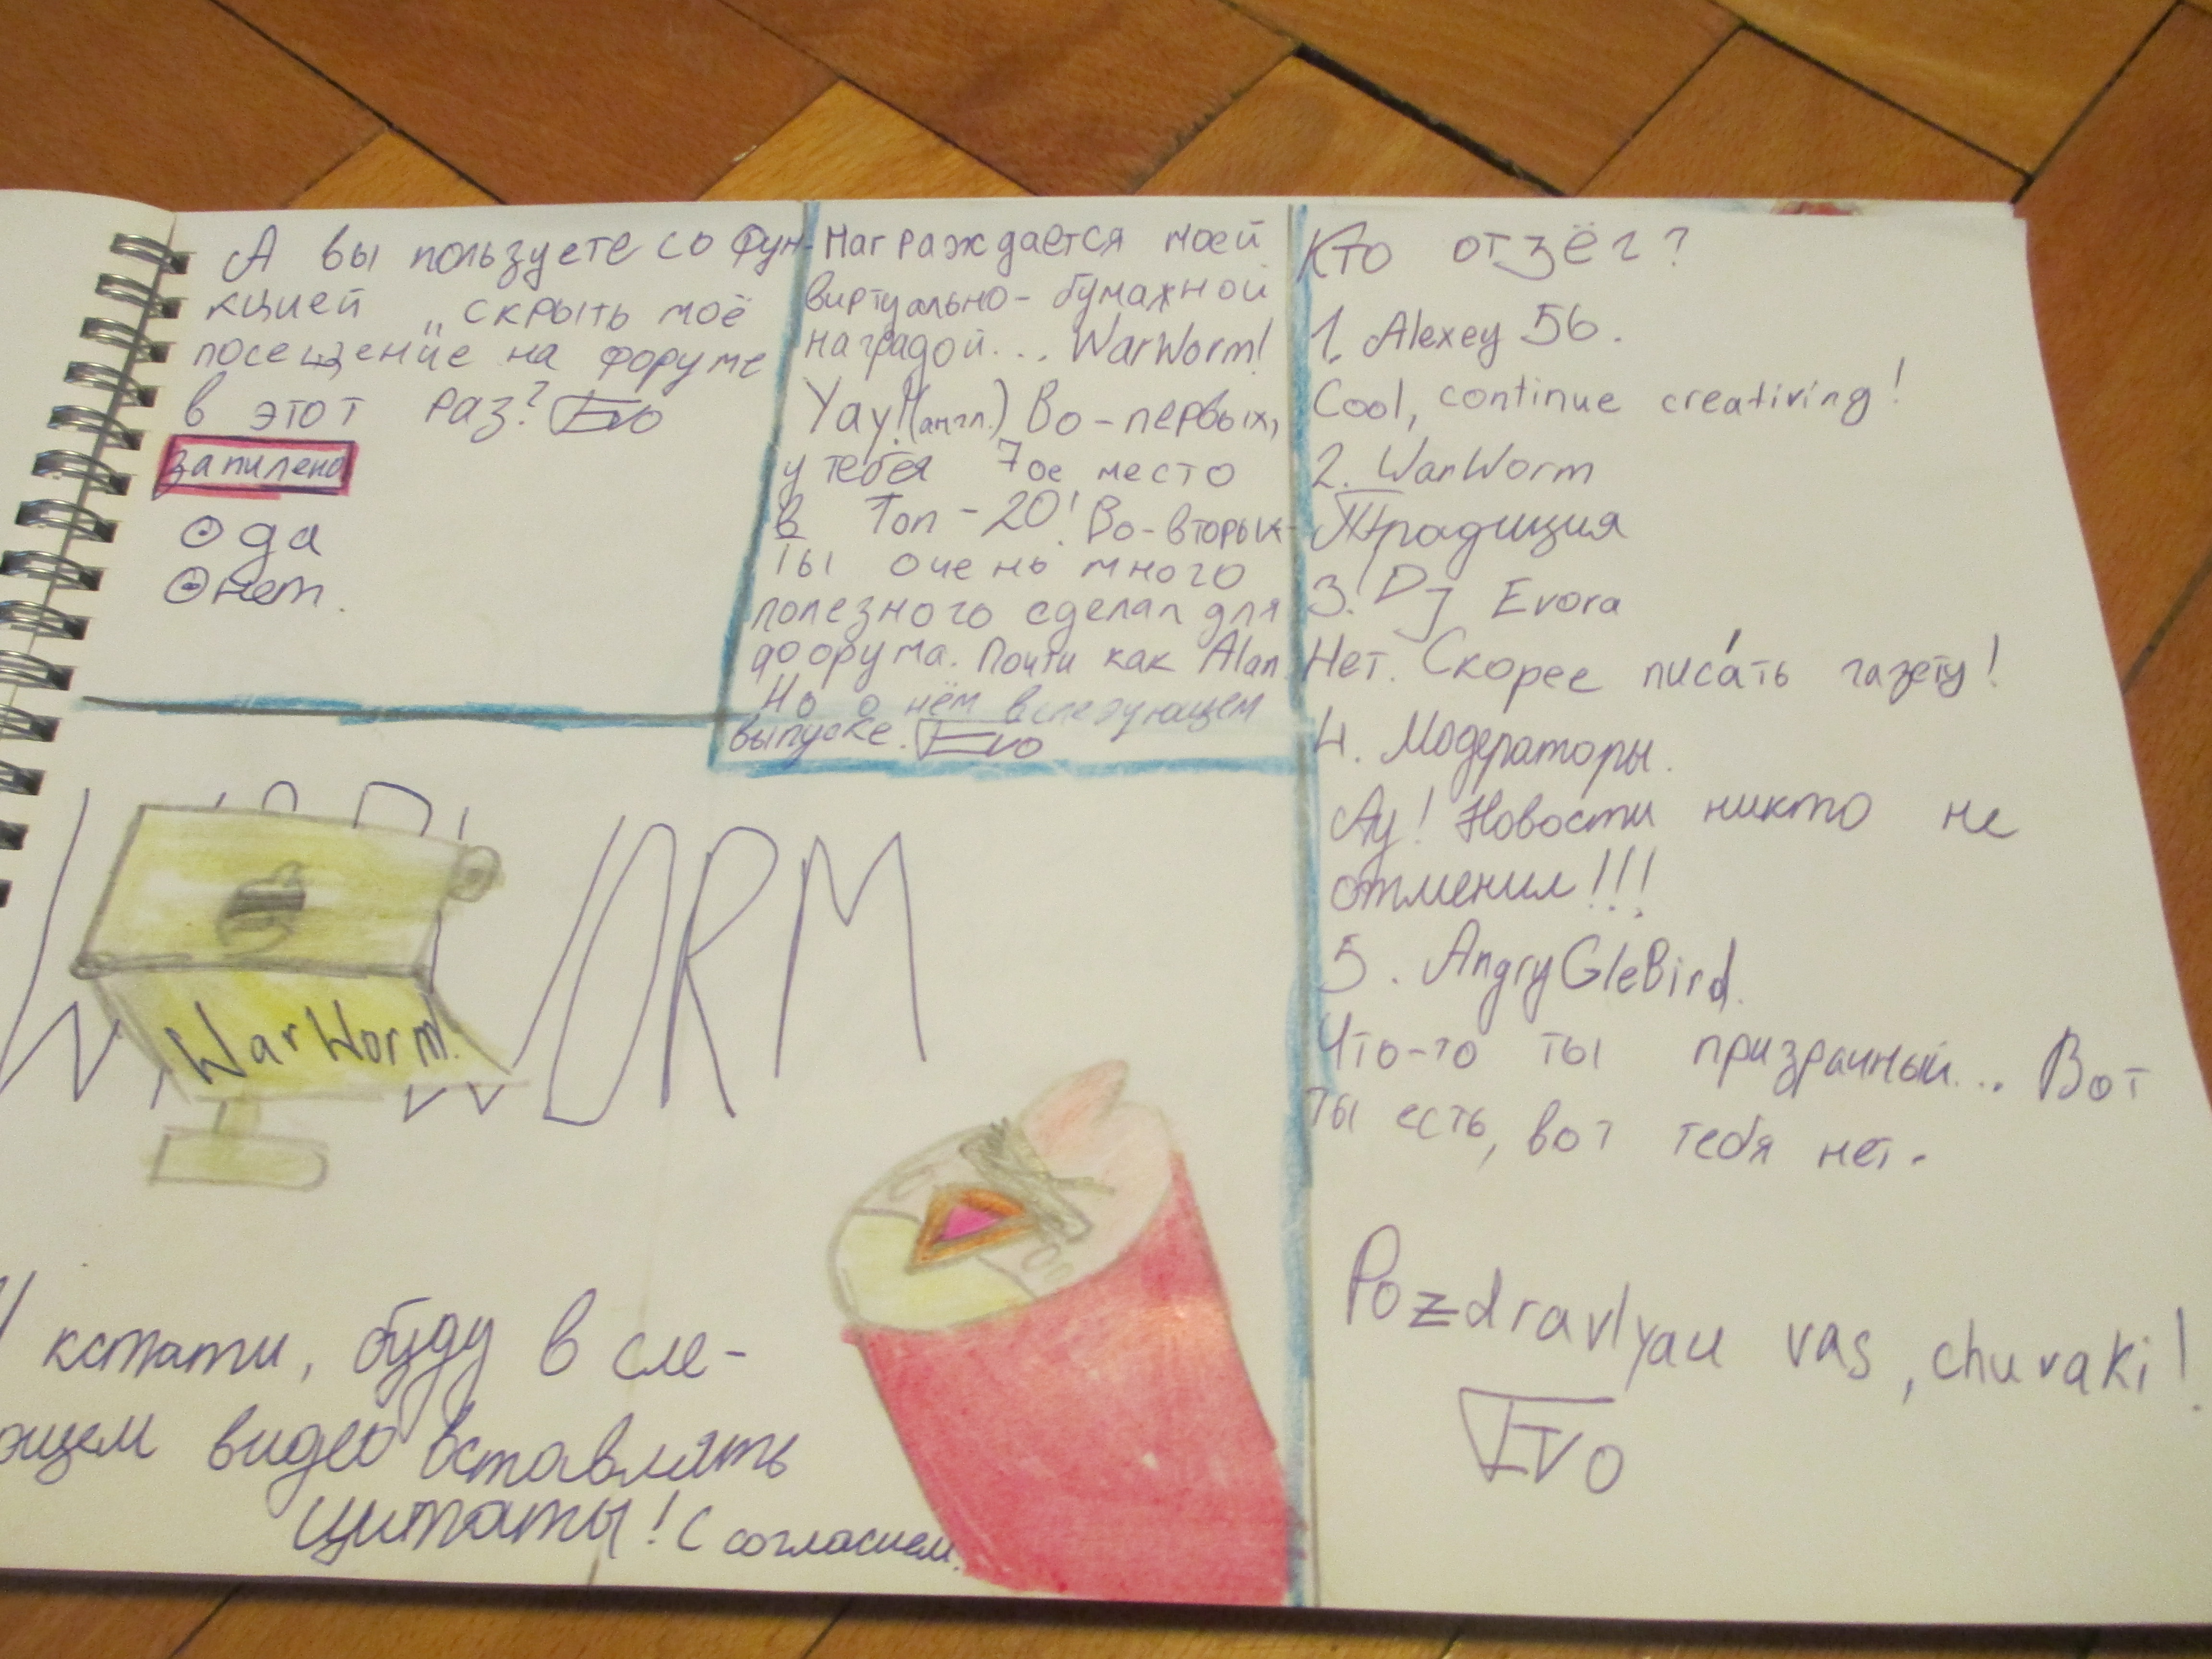 А вы пользуете со фун-
кцией „скрыть моё
посещение на форуме
в этот раз? Evo
запилено
да
нет.
Награждается моей
виртуально-бумажной
наградой... WarWorm!
Yay!(англ.) Во-первых,
у тебя 7ое место
в Топ-20! Во-вторых-
ты очень много
полезного сделал для
форума. Почти как Alan.
Но о нём в следующем
выпуске. Evo
Кто отзёг?
1. Alexey 56.
Cool, continue creativing!
2. WarWorm
Традиция
3. Dj Evora
Нет. Скорее писа́ть газету!
4. Модераторы.
Ау! Новости никто не
отменил!!!
5. AngryGleBird.
Что-то ты призрачный... Вот
ты есть, вот тебя нет.
Pozdravlyau vas, chuvaki!
Evo
WORM
WarWorm.
И кстати, буду в сле-
ющем видео вставлять
цитаты! С согласием.